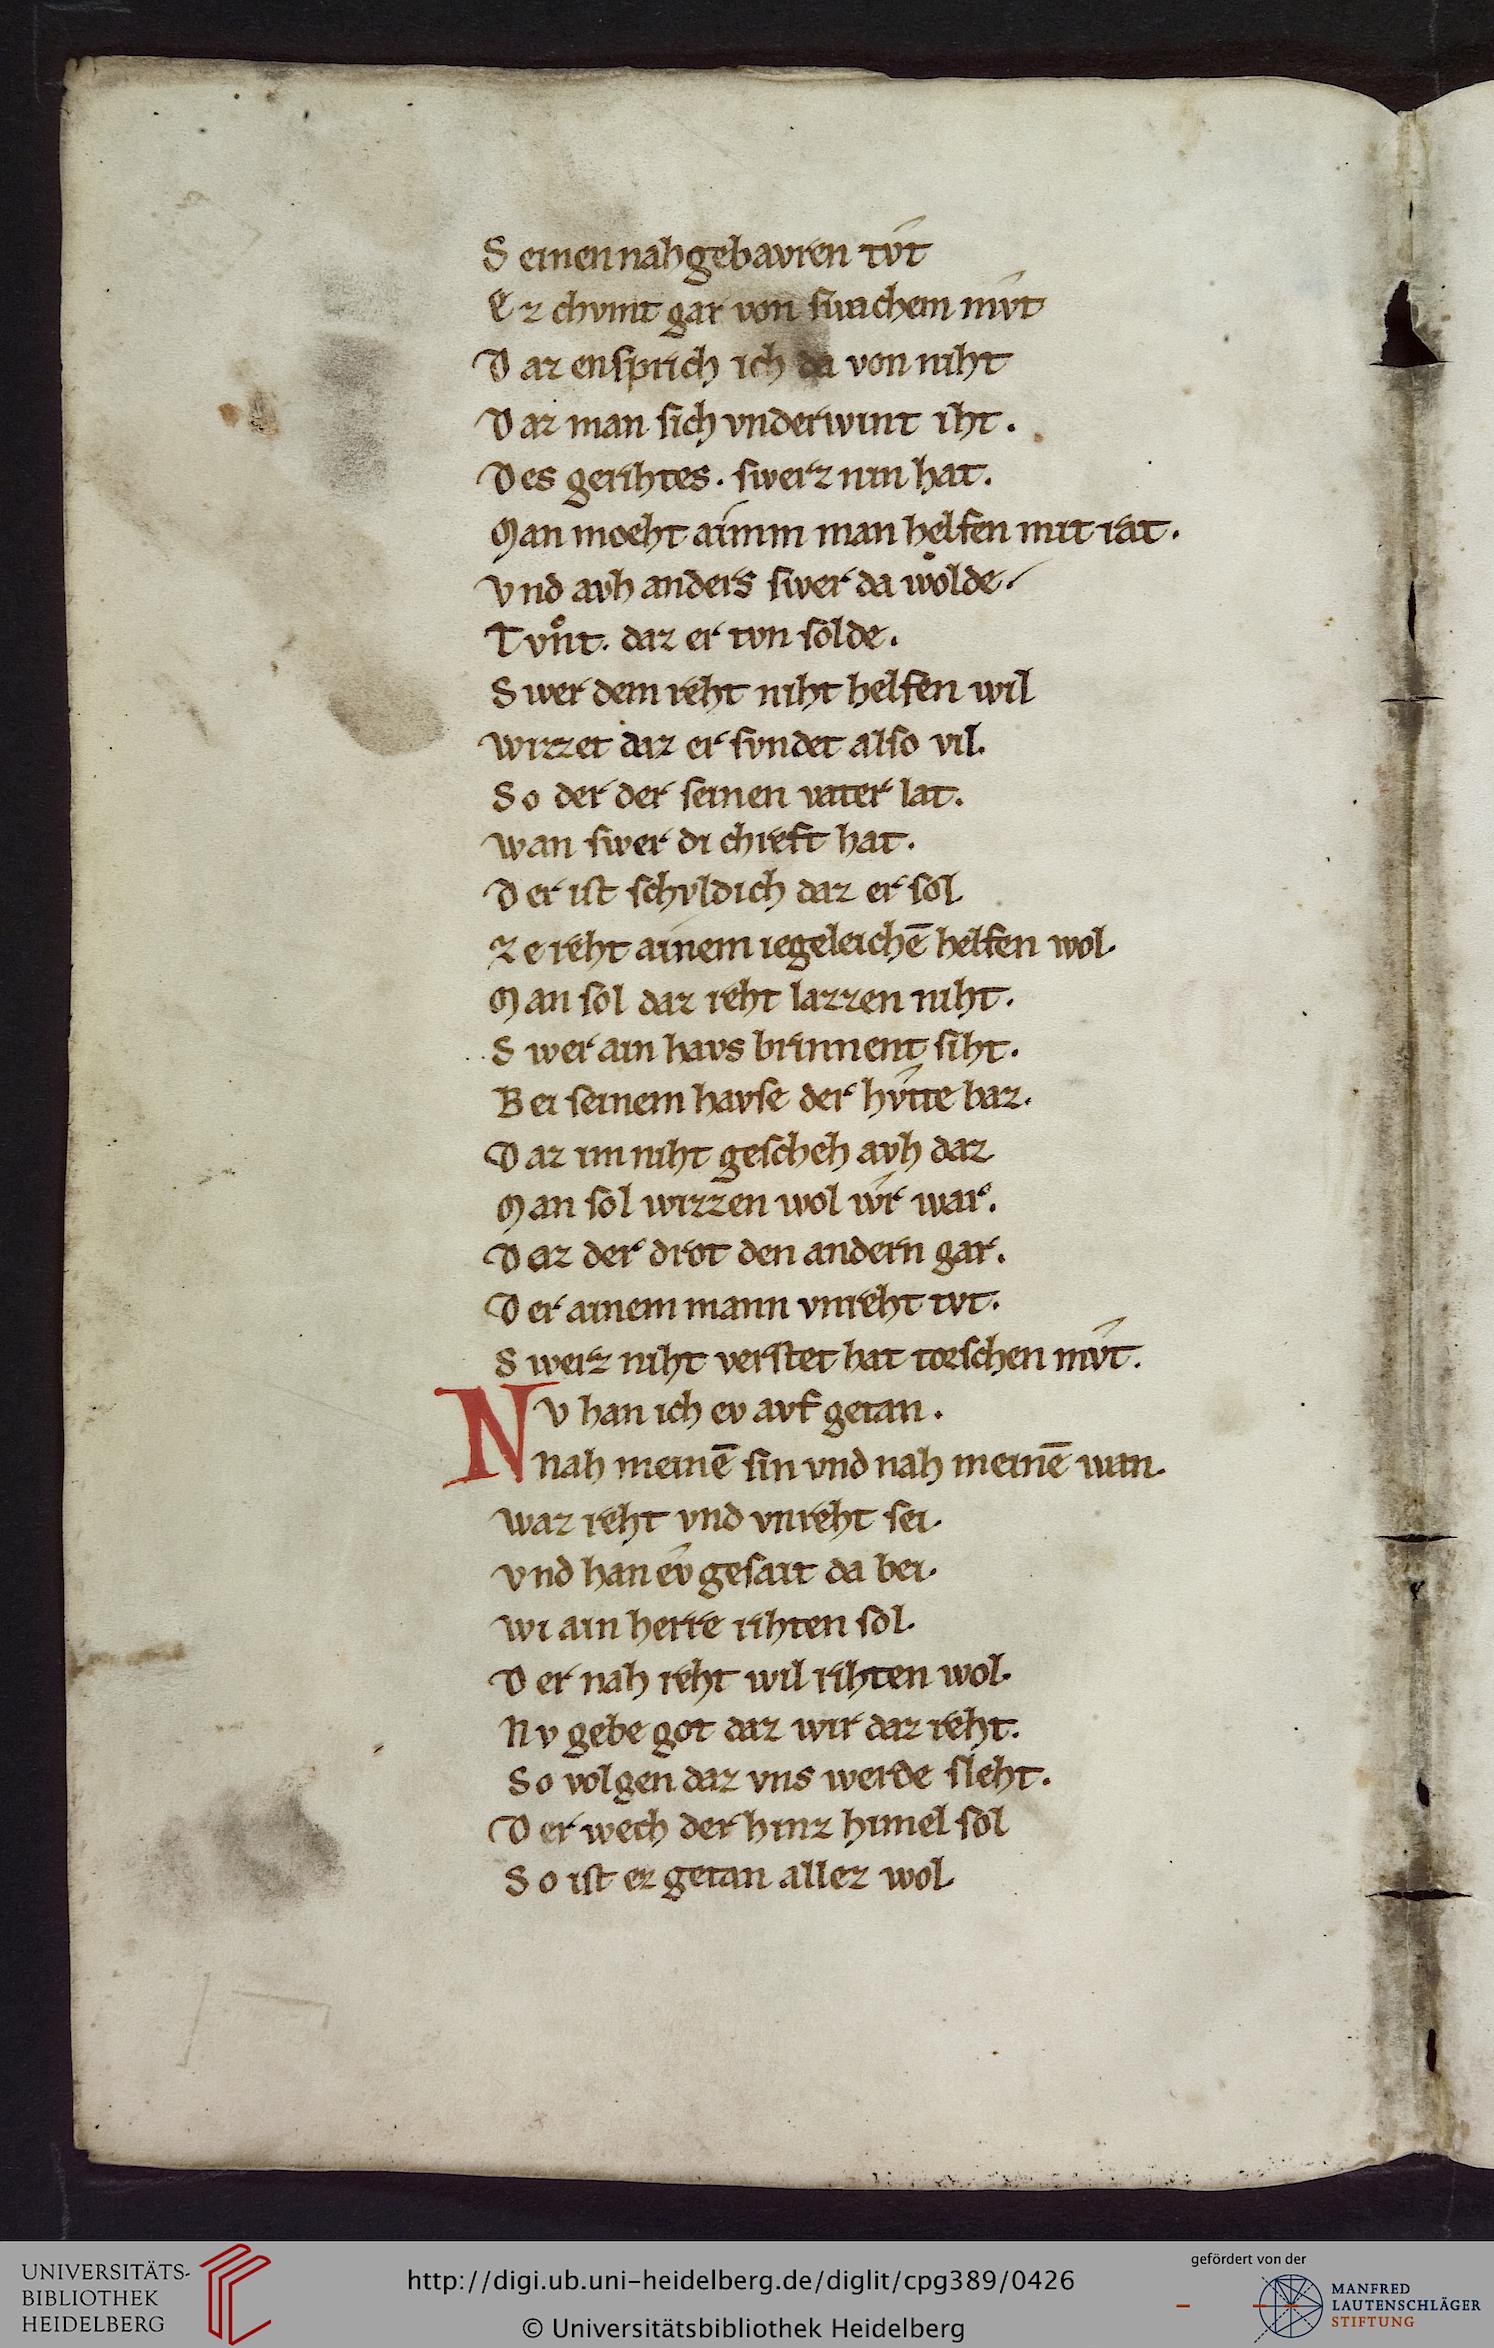 S einen nahgebavren tvt
E z chvmt gar von swachem mvt
D az ensprich ich da von niht
D az man sich vnderwint iht.
D es gerihtes. swerz nin hat.
M an moeht aimm man helfen mit rat.
V nd avh anders swer da wolde.
T vͦnt. daz er tvn solde.
S wer dem reht niht helfen wil
Wizzet daz er svndet also vil.
S o der der seinen vater lat.
Wan swer di chreft hat.
D er ist schvldich daz er sol
Z e reht ainem iegeleichē helfen wol.
M an sol daz reht lazzen niht.
S wer ain havs brinnent siht.
B ei seinem havse der hvtte baz.
D az im niht gescheh avh daz
M an sol wizzen wol wr war.
D az der drot den andern gar.
D er ainem mann vnreht tvt.
S werz niht verstet hat torschen mvt.
NV han ich ev avf getan.
nah meinē sin vnd nah meinē wan.
Waz reht vnd vnreht sei.
V nd han ev gesait da bei.
Wi ain herre rihten sol.
D er nah reht wil rihten wol.
N v gebe got daz wir daz reht.
S o volgen daz vns werde sleht.
D er wech der hinz himel sol
S o ist ez getan allez wol.
UNIVERSITÄTS-
BIBLIOTHEK
HEIDELBERG
http://digi.ub.uni-heidelberg.de/diglit/cpg389/0426
© Universitätsbibliothek Heidelberg
gefördert von der
MANFRED
LAUTENSCHLÄGER
STIFTUNG